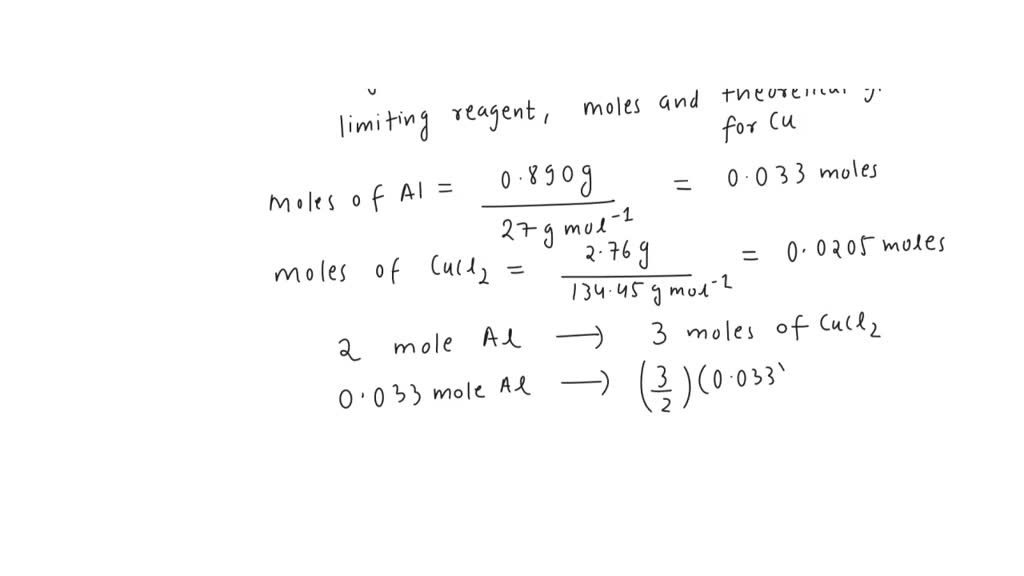 limiting reagent, moles and
for Cu
moles of Al = 0.890g / 27 g mol⁻¹ = 0.033 moles
moles of CuCl₂ = 2.76 g / 134.45 g mol⁻¹ = 0.0205 moles
2 mole Al → 3 moles of CuCl₂
0.033 mole Al → (3/2)(0.033)